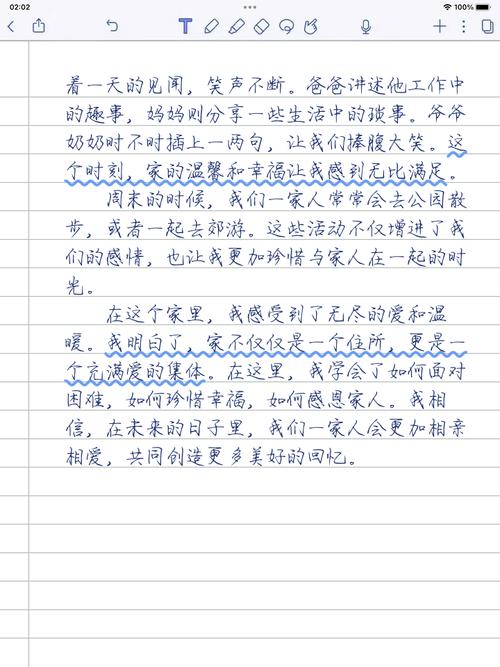 02:02
100%
T
着一天的见闻，笑声不断。爸爸讲述他工作中
的趣事，妈妈则分享一些生活中的琐事。爷爷
奶奶时不时插上一两句，让我们捧腹大笑。这
个时刻，家的温馨和幸福让我感到无比满足。
周末的时候，我们一家人常常会去公园散
步，或者一起去郊游。这些活动不仅增进了我
们的感情，也让我更加珍惜与家人在一起的时
光。
在这个家里，我感受到了无尽的爱和温
暖。我明白了，家不仅仅是一个住所，更是一
个充满爱的集体。在这里，我学会了如何面对
困难，如何珍惜幸福，如何感恩家人。我相
信，在未来的日子里，我们一家人会更加相亲
相爱，共同创造更多美好的回忆。